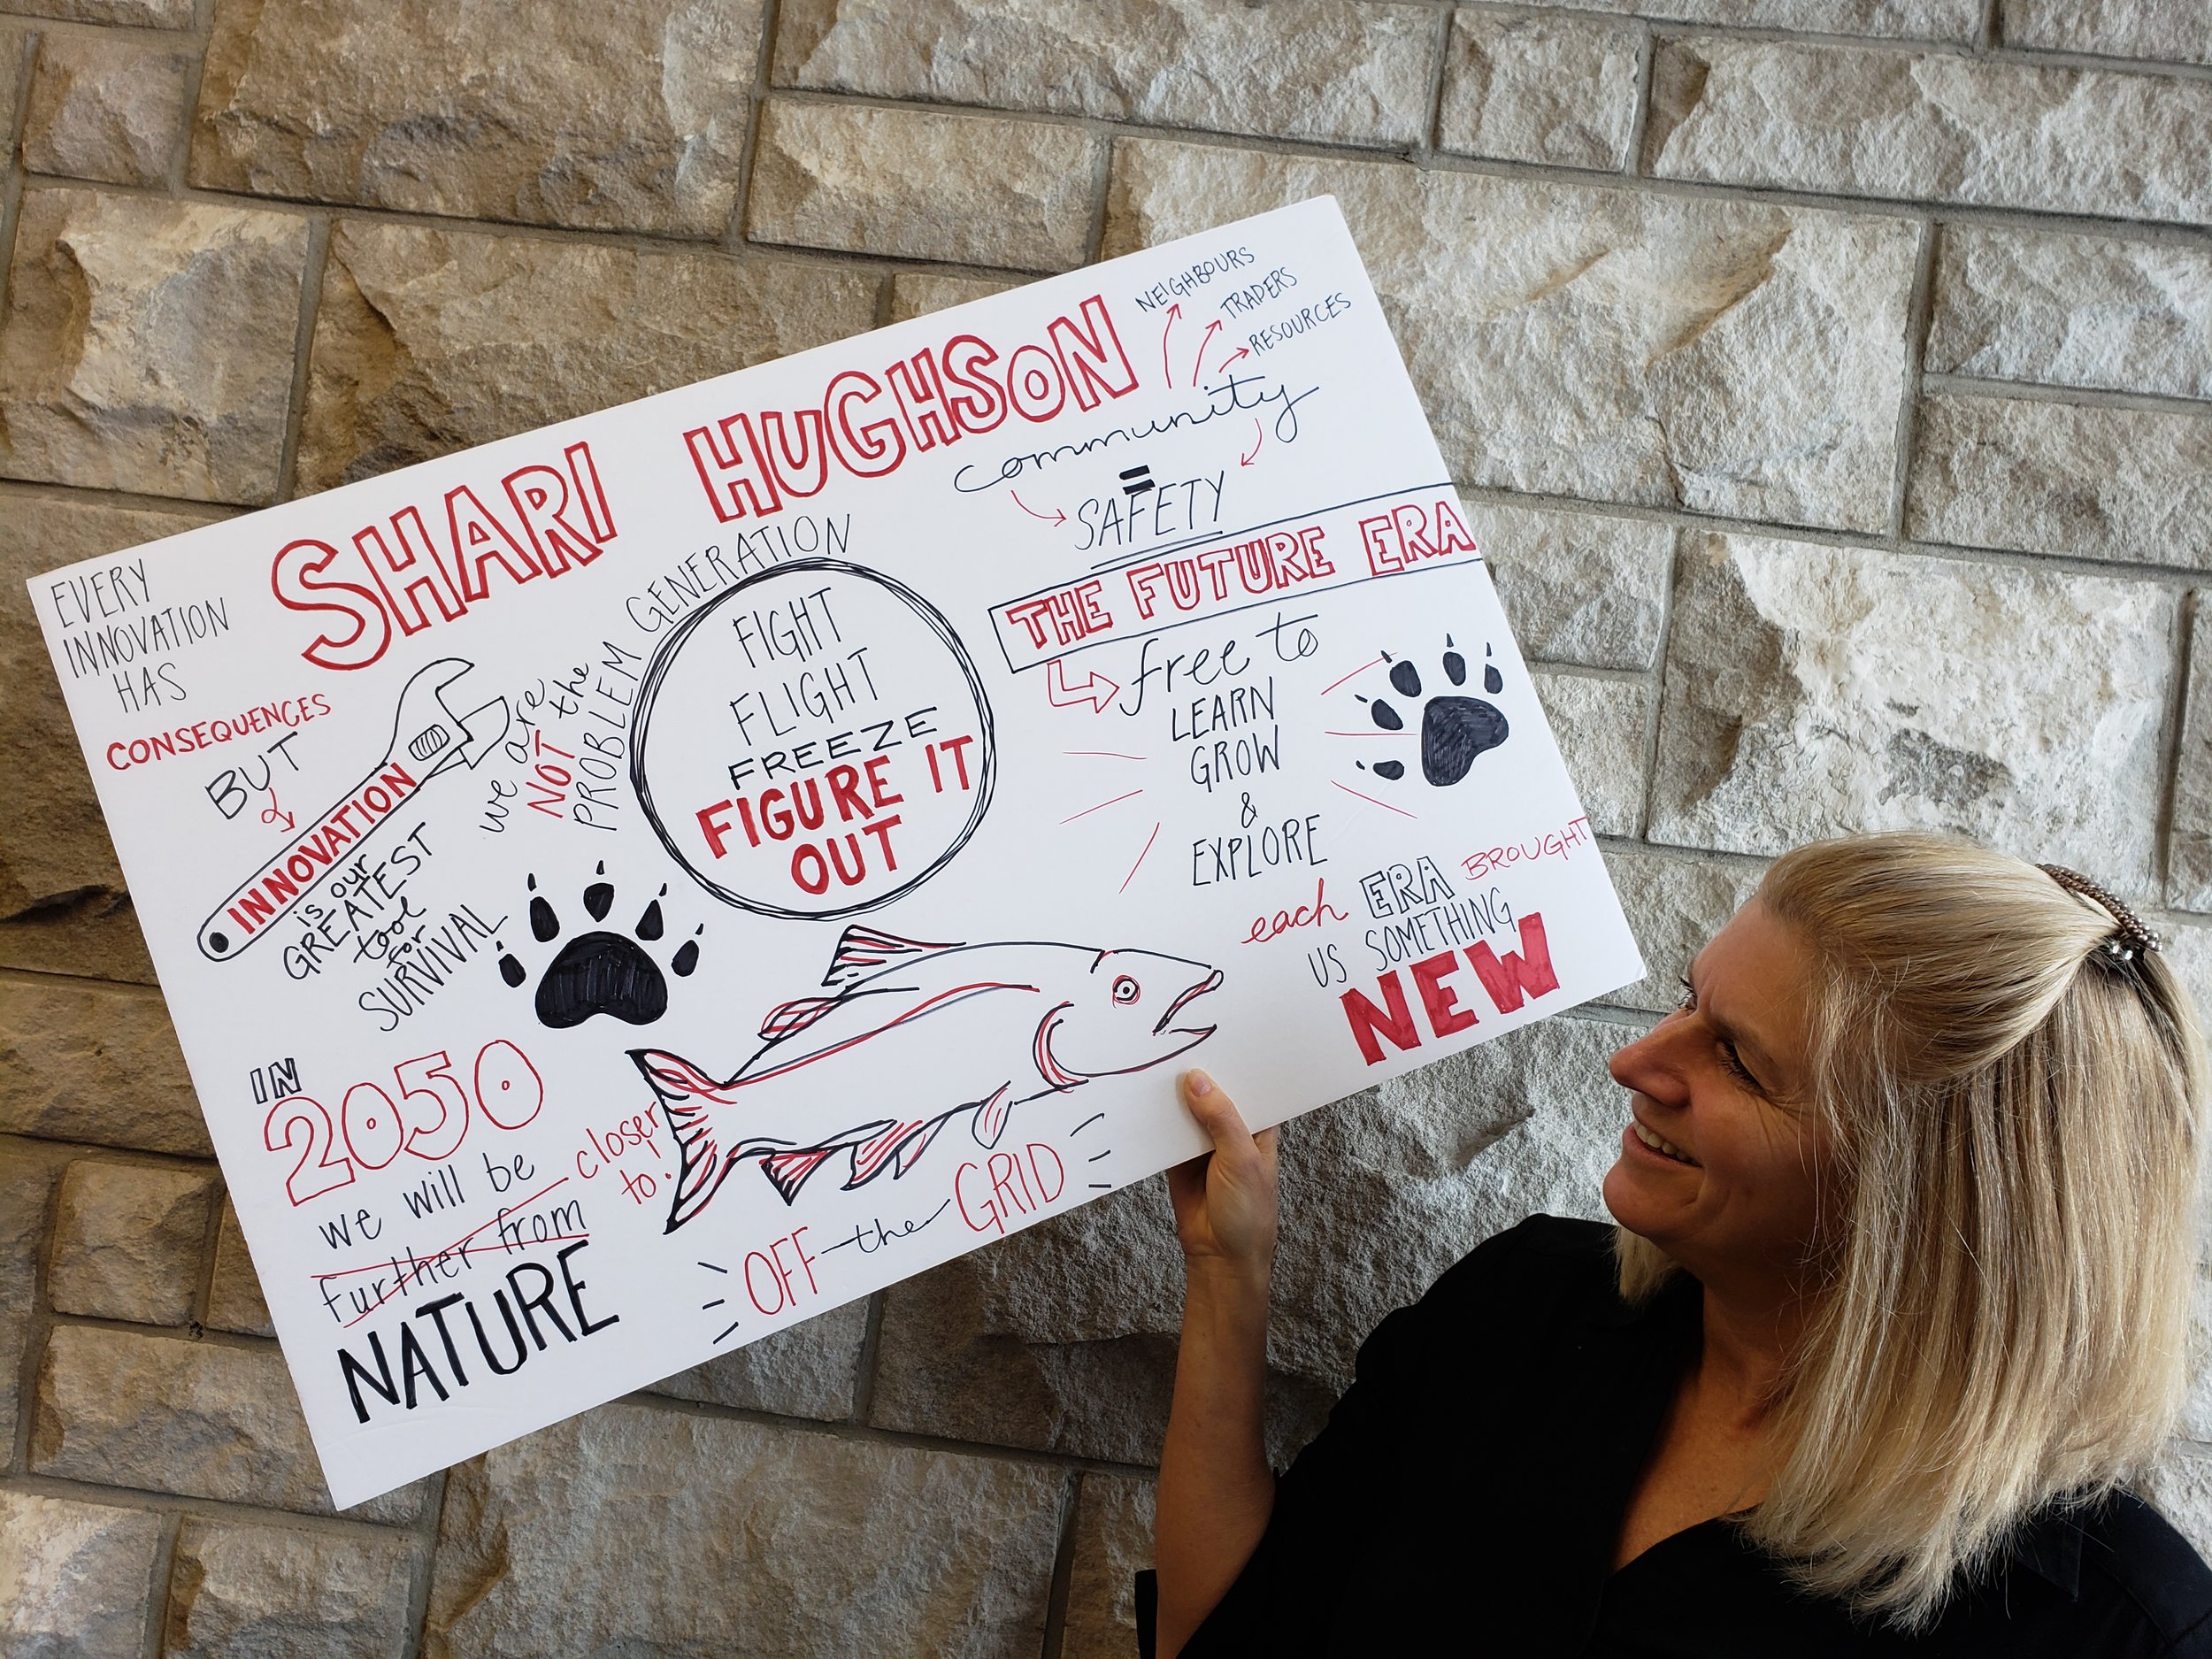 SHARI HUGHSON
EVERY
INNOVATION
HAS
CONSEQUENCES
BUT
INNOVATION
is our
GREATEST
tool
for
SURVIVAL
we are the
NOT
PROBLEM GENERATION
FIGHT
FLIGHT
FREEZE
FIGURE IT
OUT
NEIGHBOURS
TRADERS
RESOURCES
community
=
SAFETY
THE FUTURE ERA
free to
LEARN
GROW
&
EXPLORE
each ERA BROUGHT
US SOMETHING
NEW
IN
2050
we will be
further from
closer
to:
NATURE
OFF-the-GRID